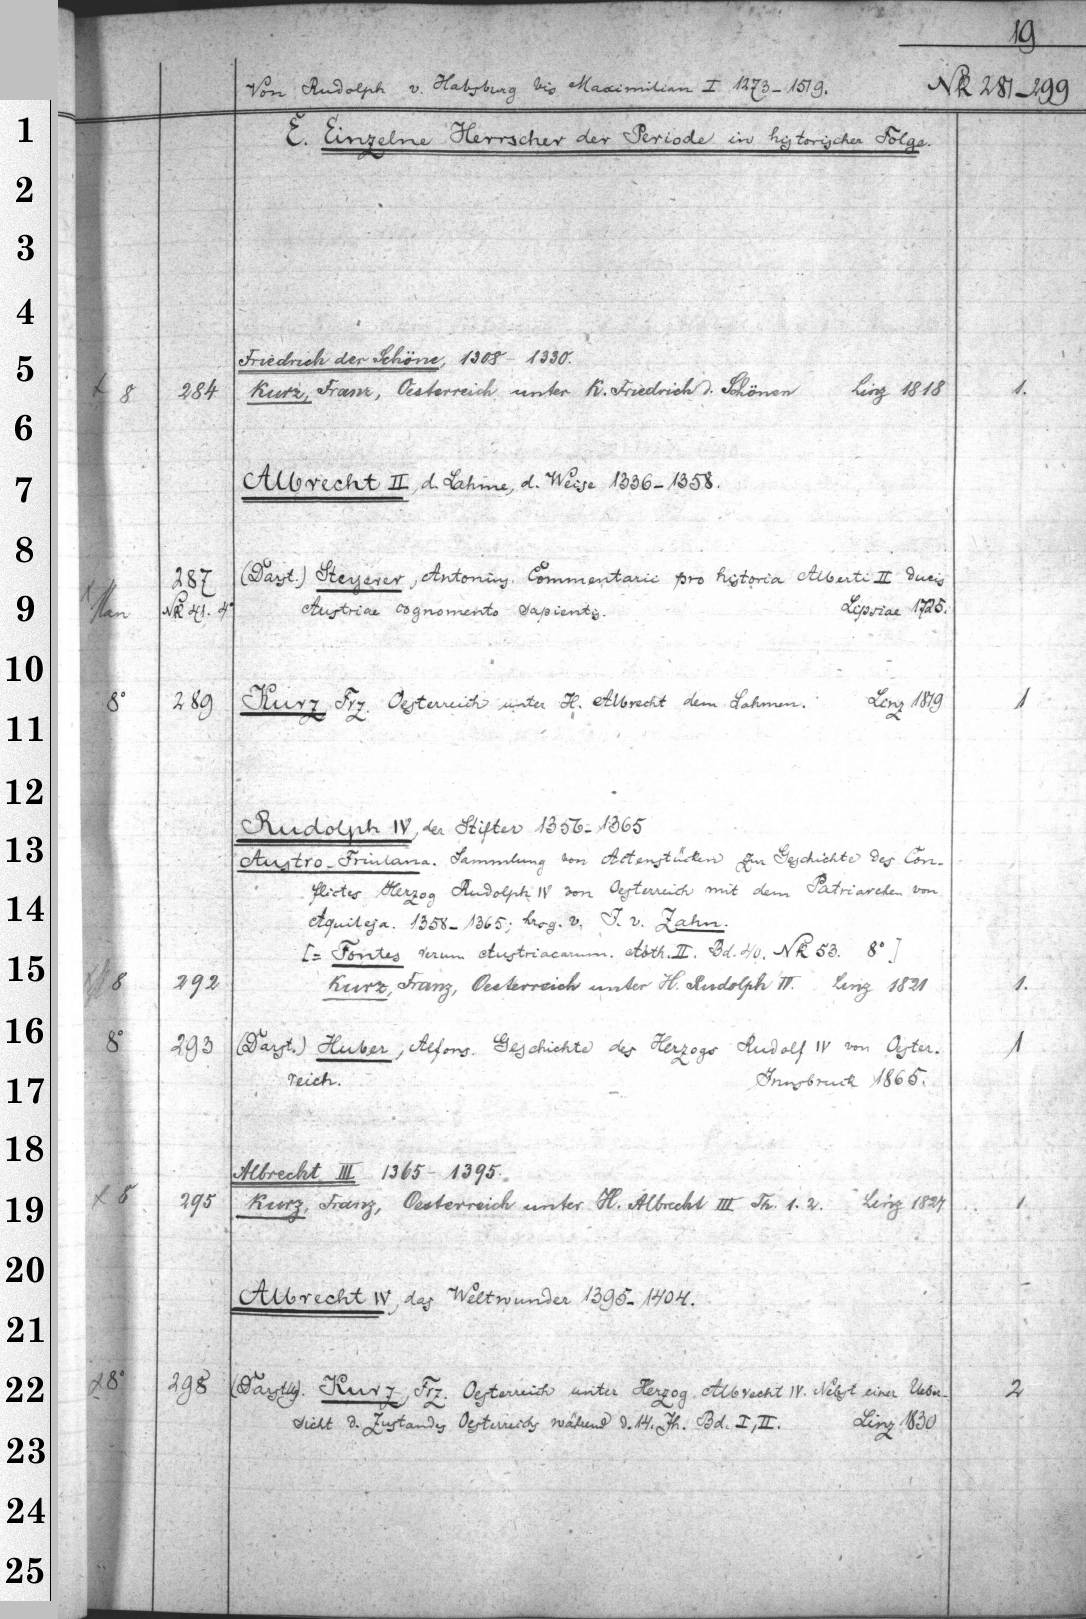 19
Von Rudolph v. Habsburg bis Maximilian I 1273-1519. NR 281-299
1 E. Einzelne Herrscher der Periode in historischer Folge.
2
3
4
Friedrich der Schöne, 1308 - 1330.
5
x 8 284 Kurz, Franz, Oesterreich unter K. Friedrich d. Schönen Linz 1818 1.
6
7 Albrecht II, d. Lahme, d. Weise 1336-1358.
8
287 (Darst.) Steyerer, Antonius. Commentarii pro historia Alberti II ducis
9 NR 41. 4° Austriae cognomento sapientis. Lipsiae 1725.
10
8° 289 Kurz Frz. Oesterreich unter H. Albrecht dem Lahmen. Linz 1819 1
11
12
Rudolph IV, der Stifter 1356-1365
13 Austro-Friulana. Sammlung von Actenstücken zur Geschichte des Con-
flictes Herzog Rudolph IV von Oesterreich mit dem Patriarchen von
14 Aquileja. 1358-1365; hrog. v. J. v. Zahn.
[= Fontes rerum Austriacarum. Abth. II. Bd. 40. NR 53. 8°]
15 8 292 Kurz, Franz, Oesterreich unter H. Rudolph IV. Linz 1821 1.
16 8° 293 (Darst.) Huber, Alfons. Geschichte des Herzogs Rudolf IV von Oester- 1
17 reich. Innsbruck 1865.
18
Albrecht III 1365 - 1395.
19 x 8 295 Kurz, Franz, Oesterreich unter H. Albrecht III Th. 1. 2. Linz 1827 1
20
Albrecht IV, das Weltwunder 1395-1404.
21
22 x 8° 298 (Darstllg). Kurz, Frz. Oesterreich unter Herzog Albrecht IV. Nebst einer Ueber- 2
sicht d. Zustandes Oesterreichs während d. 14. Jh. Bd. I, II. Linz 1830
23
24
25